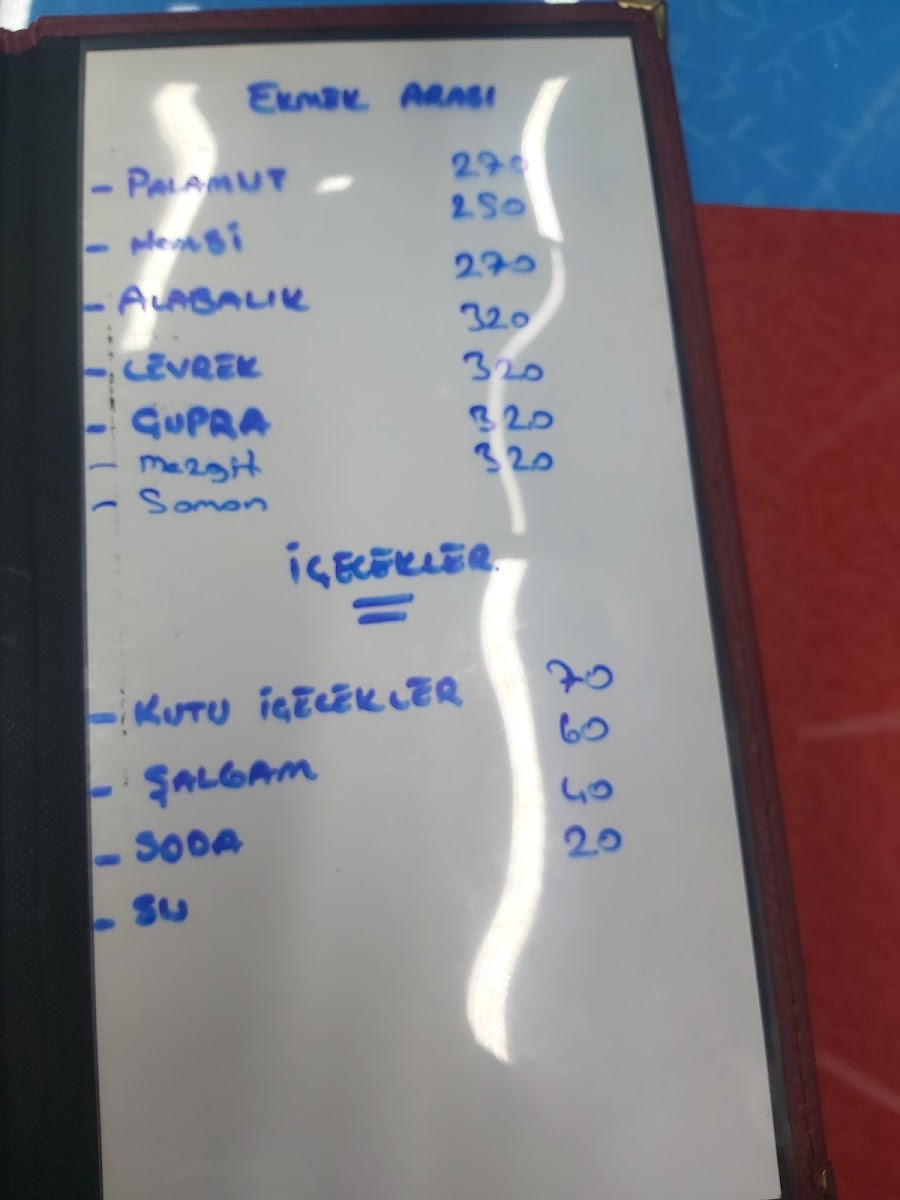 EKMEK ARASI
- PALAMUT 270
- HAMSİ 250
- ALABALIK 270
- LEVREK 320
- GUPRA 320
- mezgit 320
- Somon 320
İÇECEKLER
- KUTU İÇECEKLER 70
- ŞALGAM 60
- SODA 40
- SU 20